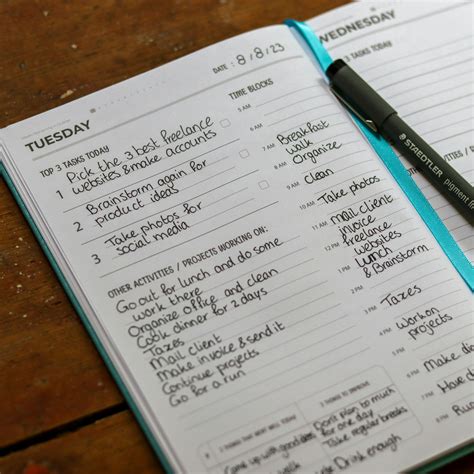 TUESDAY
DATE: 8/8/23
TOP 3 TASKS TODAY
1 Pick the 3 best freelance
websites & make accounts
2 Brainstorm again for
product ideas
3 Take photos for
social media
OTHER ACTIVITIES / PROJECTS WORKING ON:
Go out for lunch and do some
work there
Organize office and clean
Cook dinner for 2 days
Taxes
Mail client
Make invoice & send it
Continue projects
Go for a run
TIME BLOCKS
5 AM
6 AM
7 AM Breakfast
walk
8 AM Organize
9 AM Clean
10 AM Take photos
11 AM mail client
invoice
12 PM freelance
websites
1 PM lunch
2 PM & Brainstorm
3 PM
4 PM Taxes
5 PM Work on
projects
6 PM
7 PM Make
Have
8 PM Run
3 THINGS THAT WENT WELL TODAY
Come up with good
3 THINGS TO IMPROVE
Don't plan to much
for one day
Take regular breaks
WEDNESDAY
TOP 3 TASKS TODAY
1
2
3
STAEDTLER
pigment